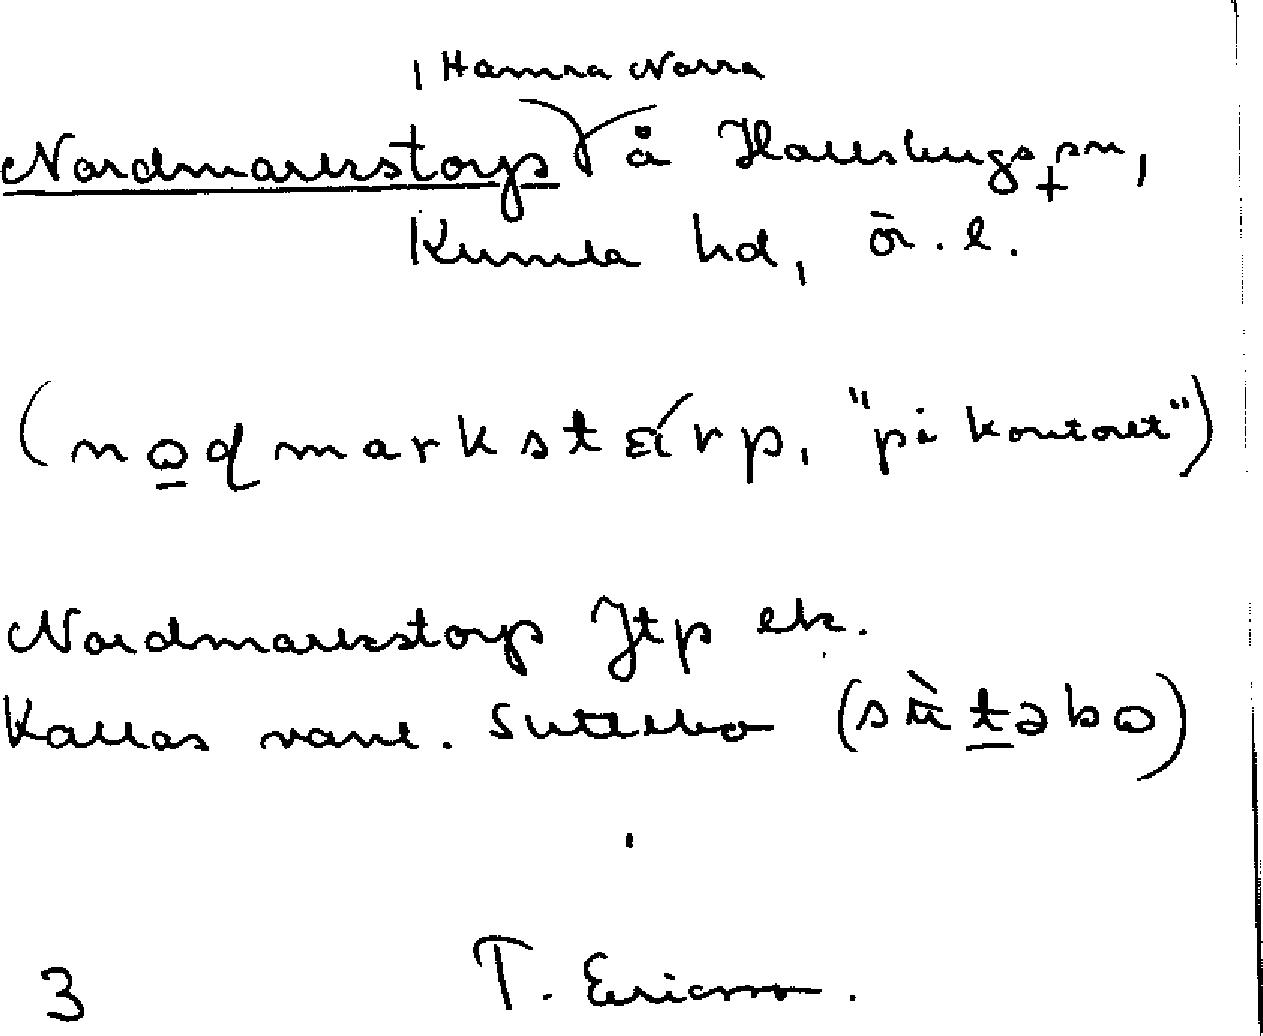 , Hamra Norra
Nordmarkstorp å Hallsbergs sn,
Kumla hd, ör. l.
(nǫdmarkstærp, "på kontoret")
Nordmarkstorp Jtp ek.
Kallas vanl. Suttebo (sùtəbo)
3 T. Ericsson.